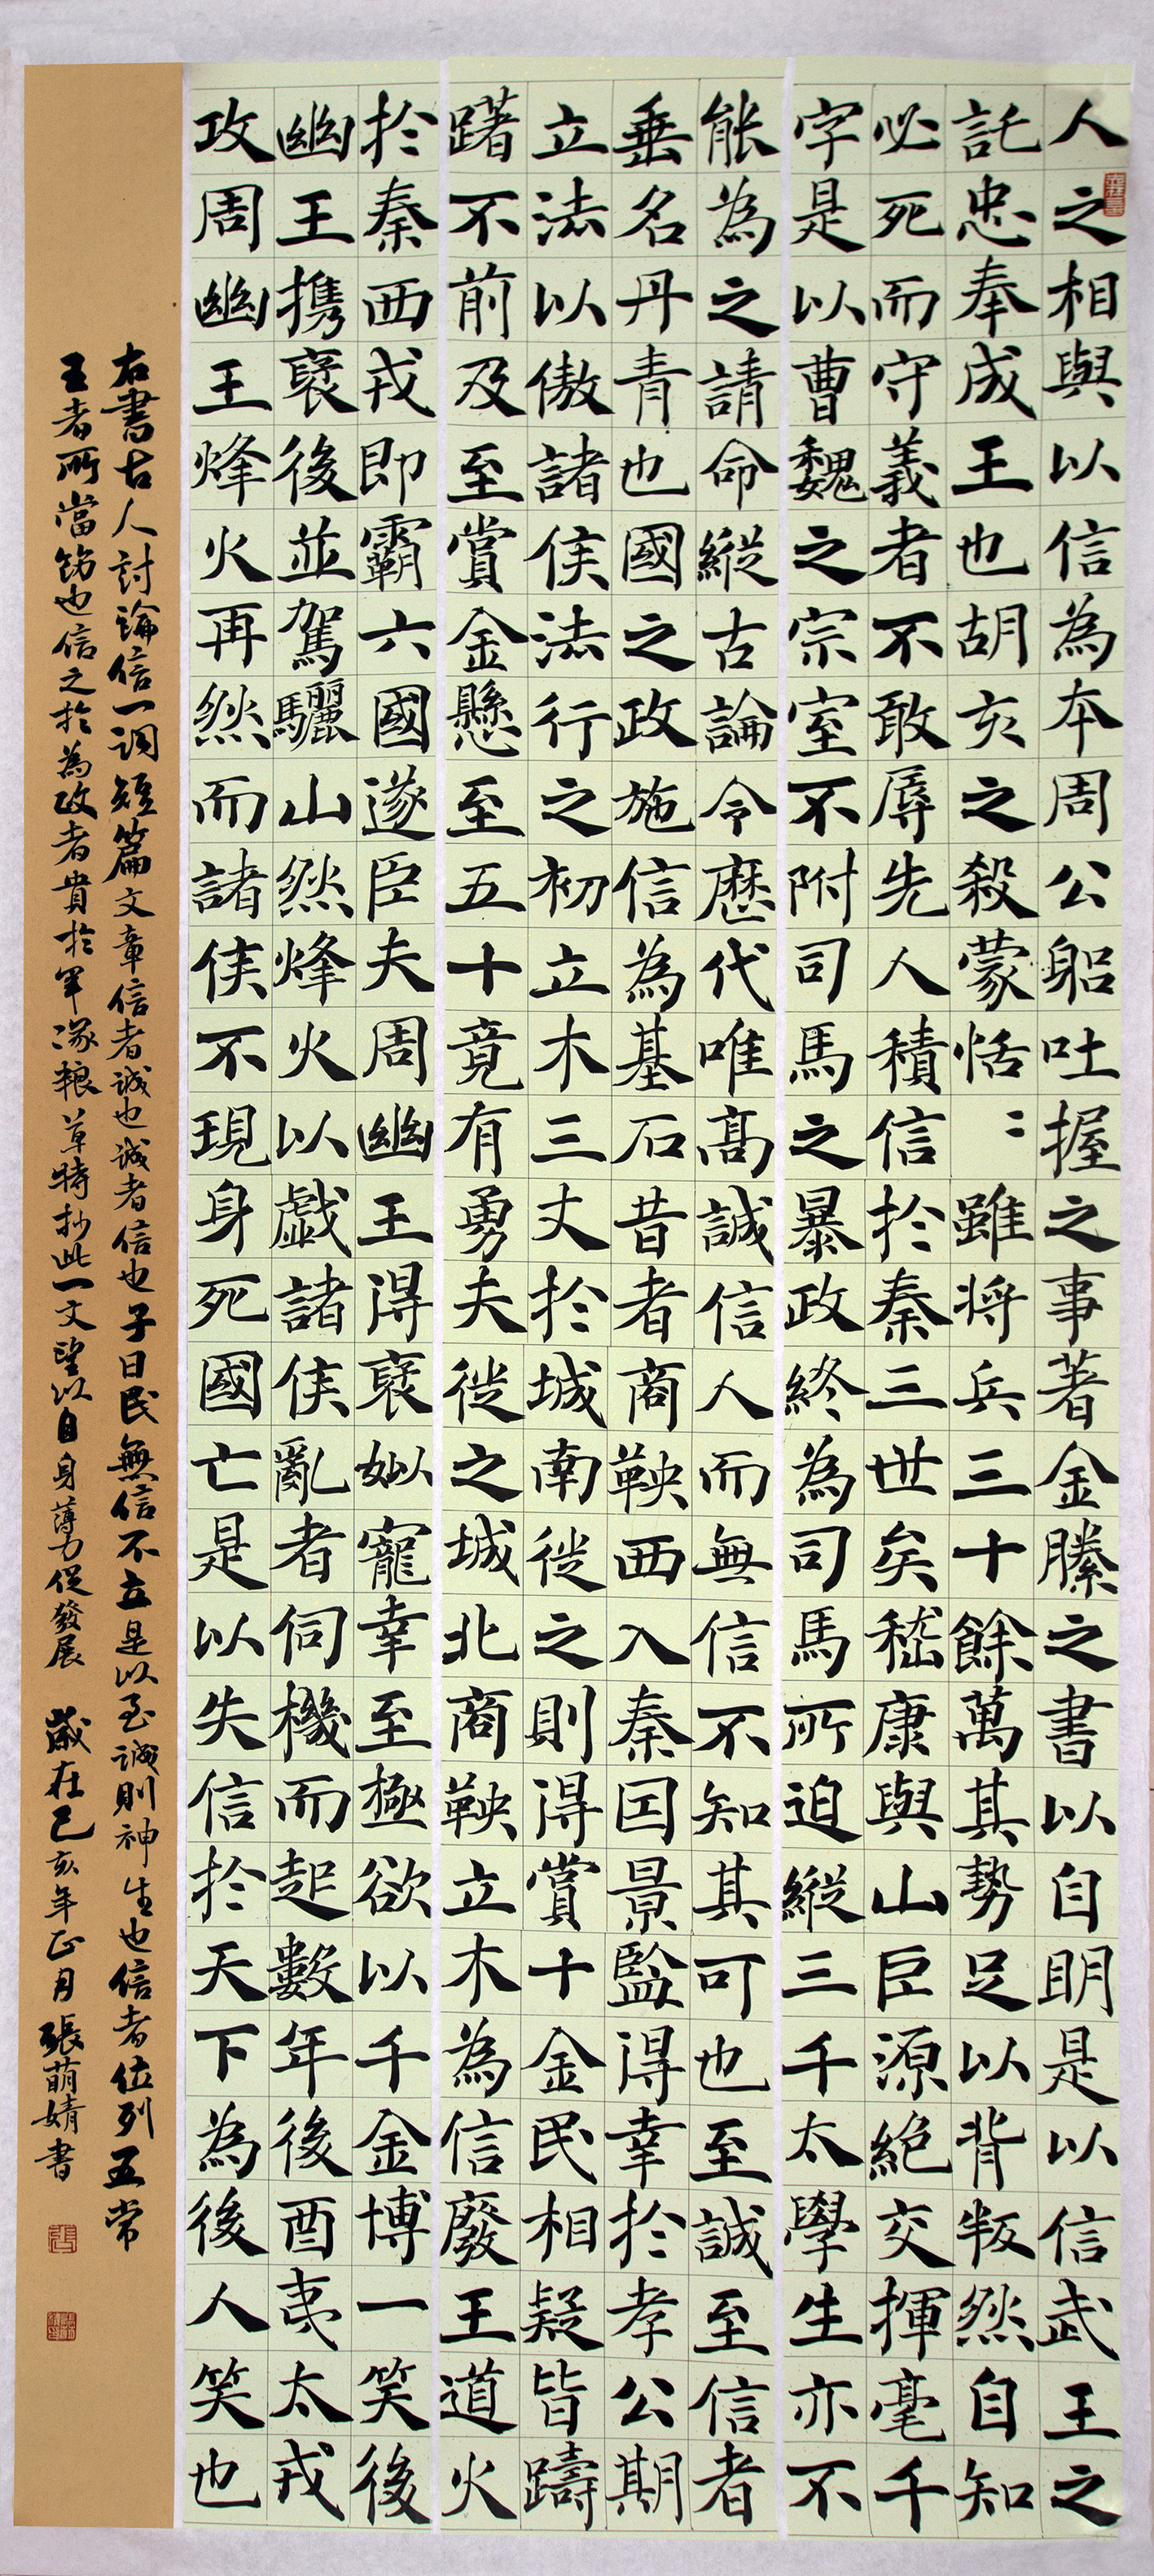 人之相與以信為本周公躬吐握之事著金縢之書以自明是以信武王之
託忠奉成王也胡亥之殺蒙恬〻雖將兵三十餘萬其勢足以背叛然自知
必死而守義者不敢辱先人積信扵秦三世矣嵇康與山巨源絕交揮毫千
字是以曹魏之宗室不附司馬之暴政終為司馬所迫縱三千太學生亦不
能為之請命縱古論令歷代唯高誠信人而無信不知其可也至誠至信者
垂名丹青也國之政施信為基石昔者商鞅西入秦囯景監得幸扵孝公期
立法以傲諸侯法行之初立木三丈扵城南徙之則得賞十金民相疑皆躊
躇不前及至賞金懸至五十竟有勇夫徙之城北商鞅立木為信廢王道火
扵秦西戎即霸六國遂臣夫周幽王得襃姒寵幸至極欲以千金博一笑後
幽王攜襃後並駕驪山然烽火以戲諸侯亂者伺機而起數年後酉夷太戎
攻周幽王烽火再然而諸侯不現身死國亡是以失信扵天下為後人笑也
右書古人討論信一詞短篇文章信者誠也誠者信也子曰民無信不立是以至誠則神生也信者位列五常
王者所當飭也信之扵為政者貴扵軍隊粮草時抄此一文望以自身薄力促發展 歲在己亥年正月張萌婧書